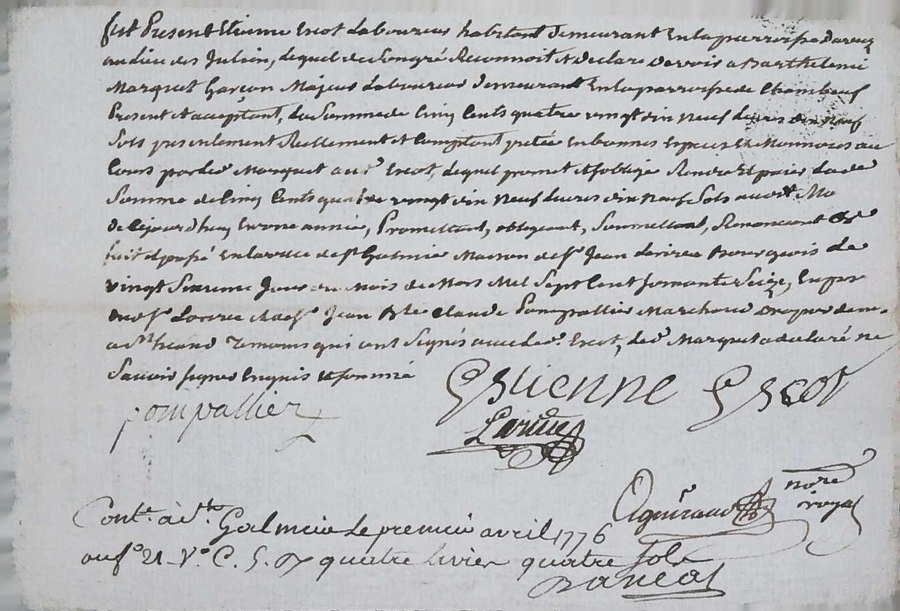 fut Present Etienne Escot Laboureur habitant demeurant En la parroisse
au lieu des Julien, Lequel de Son gré Reconnoit et declare devoir a Barthelemi
Marquet Garçon Majeur Laboureur demeurant En la parroisse de Chambeuf
Present et acceptant, La Somme de Cinq Cents quatre vingt dix Neuf Livres dix Neuf
Sols presentement Reellement et Comptant pretée En bonnes Especes Et Monnoies au
Cours par led Marquet aud Escot, Lequel promet et soblige Rendre Et paier Lade
Somme de Cinq Cents quatre vingt dix Neuf Livres dix Neuf Sols aud
de Cejourdhuy En une année, Promettant, obligeant, Soummettant, Renonceant &
fait et passé En la ville de St Galmier Maison de Sr Jean Bourgeois Le
vingt Sixieme Jour du Mois de Mars Mil Sept Cent soixante Seize, En
dud Sr et de Sr Jean Bte Claude Pompallier Marchand Drapier
Temoins qui ont Signés avec led. Escot, Led Marquet a declaré ne
Savoir signer Enquis et sommé
Estienne Escot
pompallier
Larive
not.re royal
Cont.é à St. Galmier Le premier avril 1776
au f.o 21 V.o C. 5. quatre livres quatre sols